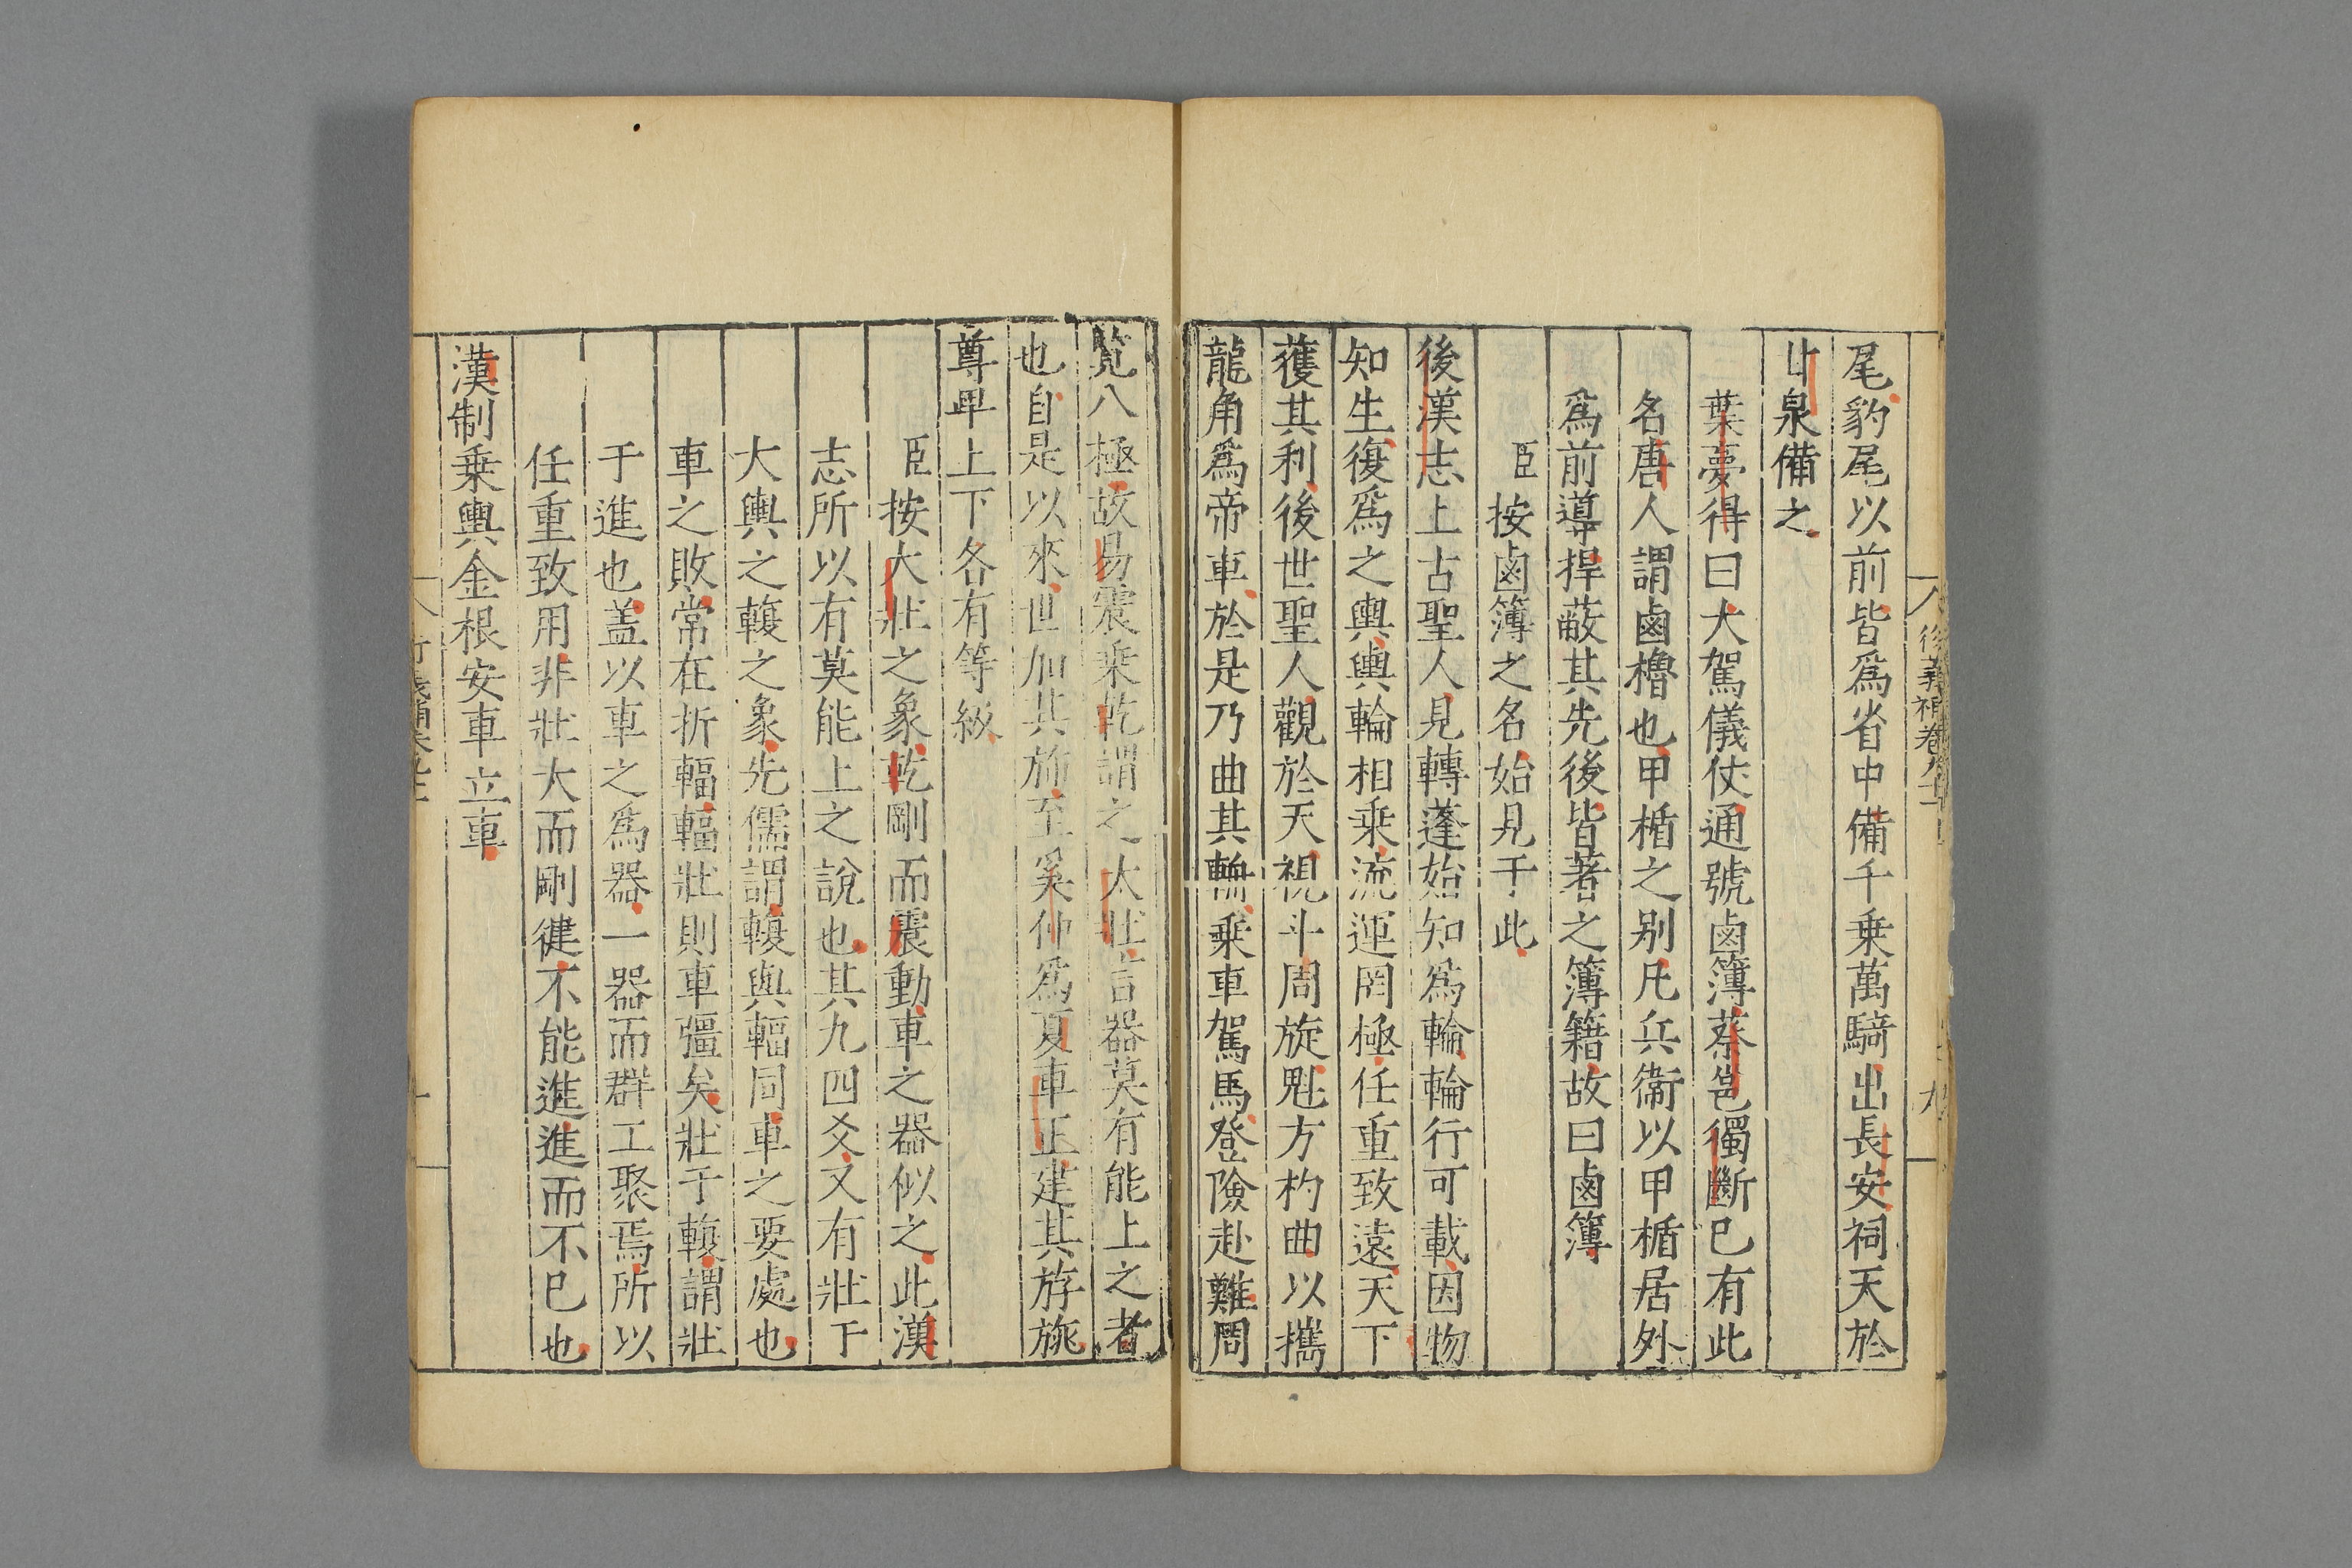 尾豹尾以前皆爲省中備千乗萬騎出長安祠天於
甘泉備之
葉夢得曰大駕儀仗通號鹵簿蔡邕獨斷已有此
名唐人謂鹵櫓也甲楯之别凡兵衛以甲楯居外
爲前導捍蔽其先後皆著之簿籍故曰鹵簿
臣按鹵簿之名始見于此
後漢志上古聖人見轉蓬始知爲輪輪行可載因物
知生復爲之輿輿輪相乗流運罔極任重致遠天下
獲其利後世聖人觀於天視斗周旋魁方杓曲以攜
龍角爲帝車於是乃曲其輈乗車駕馬登險赴難周
覧八極故易震乗乾謂之大壯言器莫有能上之者
也自是以來世加其飾至奚仲爲夏車正建其斿旐
尊卑上下各有等級
臣按大壯之象乾剛而震動車之器似之此漢
志所以有莫能上之說也其九四爻又有壯于
大輿之輹之象先儒謂輹與輻同車之要處也
車之敗常在折輻輻壯則車彊矣壯于輹謂壯
于進也蓋以車之爲器一器而群工聚焉所以
任重致用非壯大而剛健不能進進而不已也
漢制乗輿金根安車立車